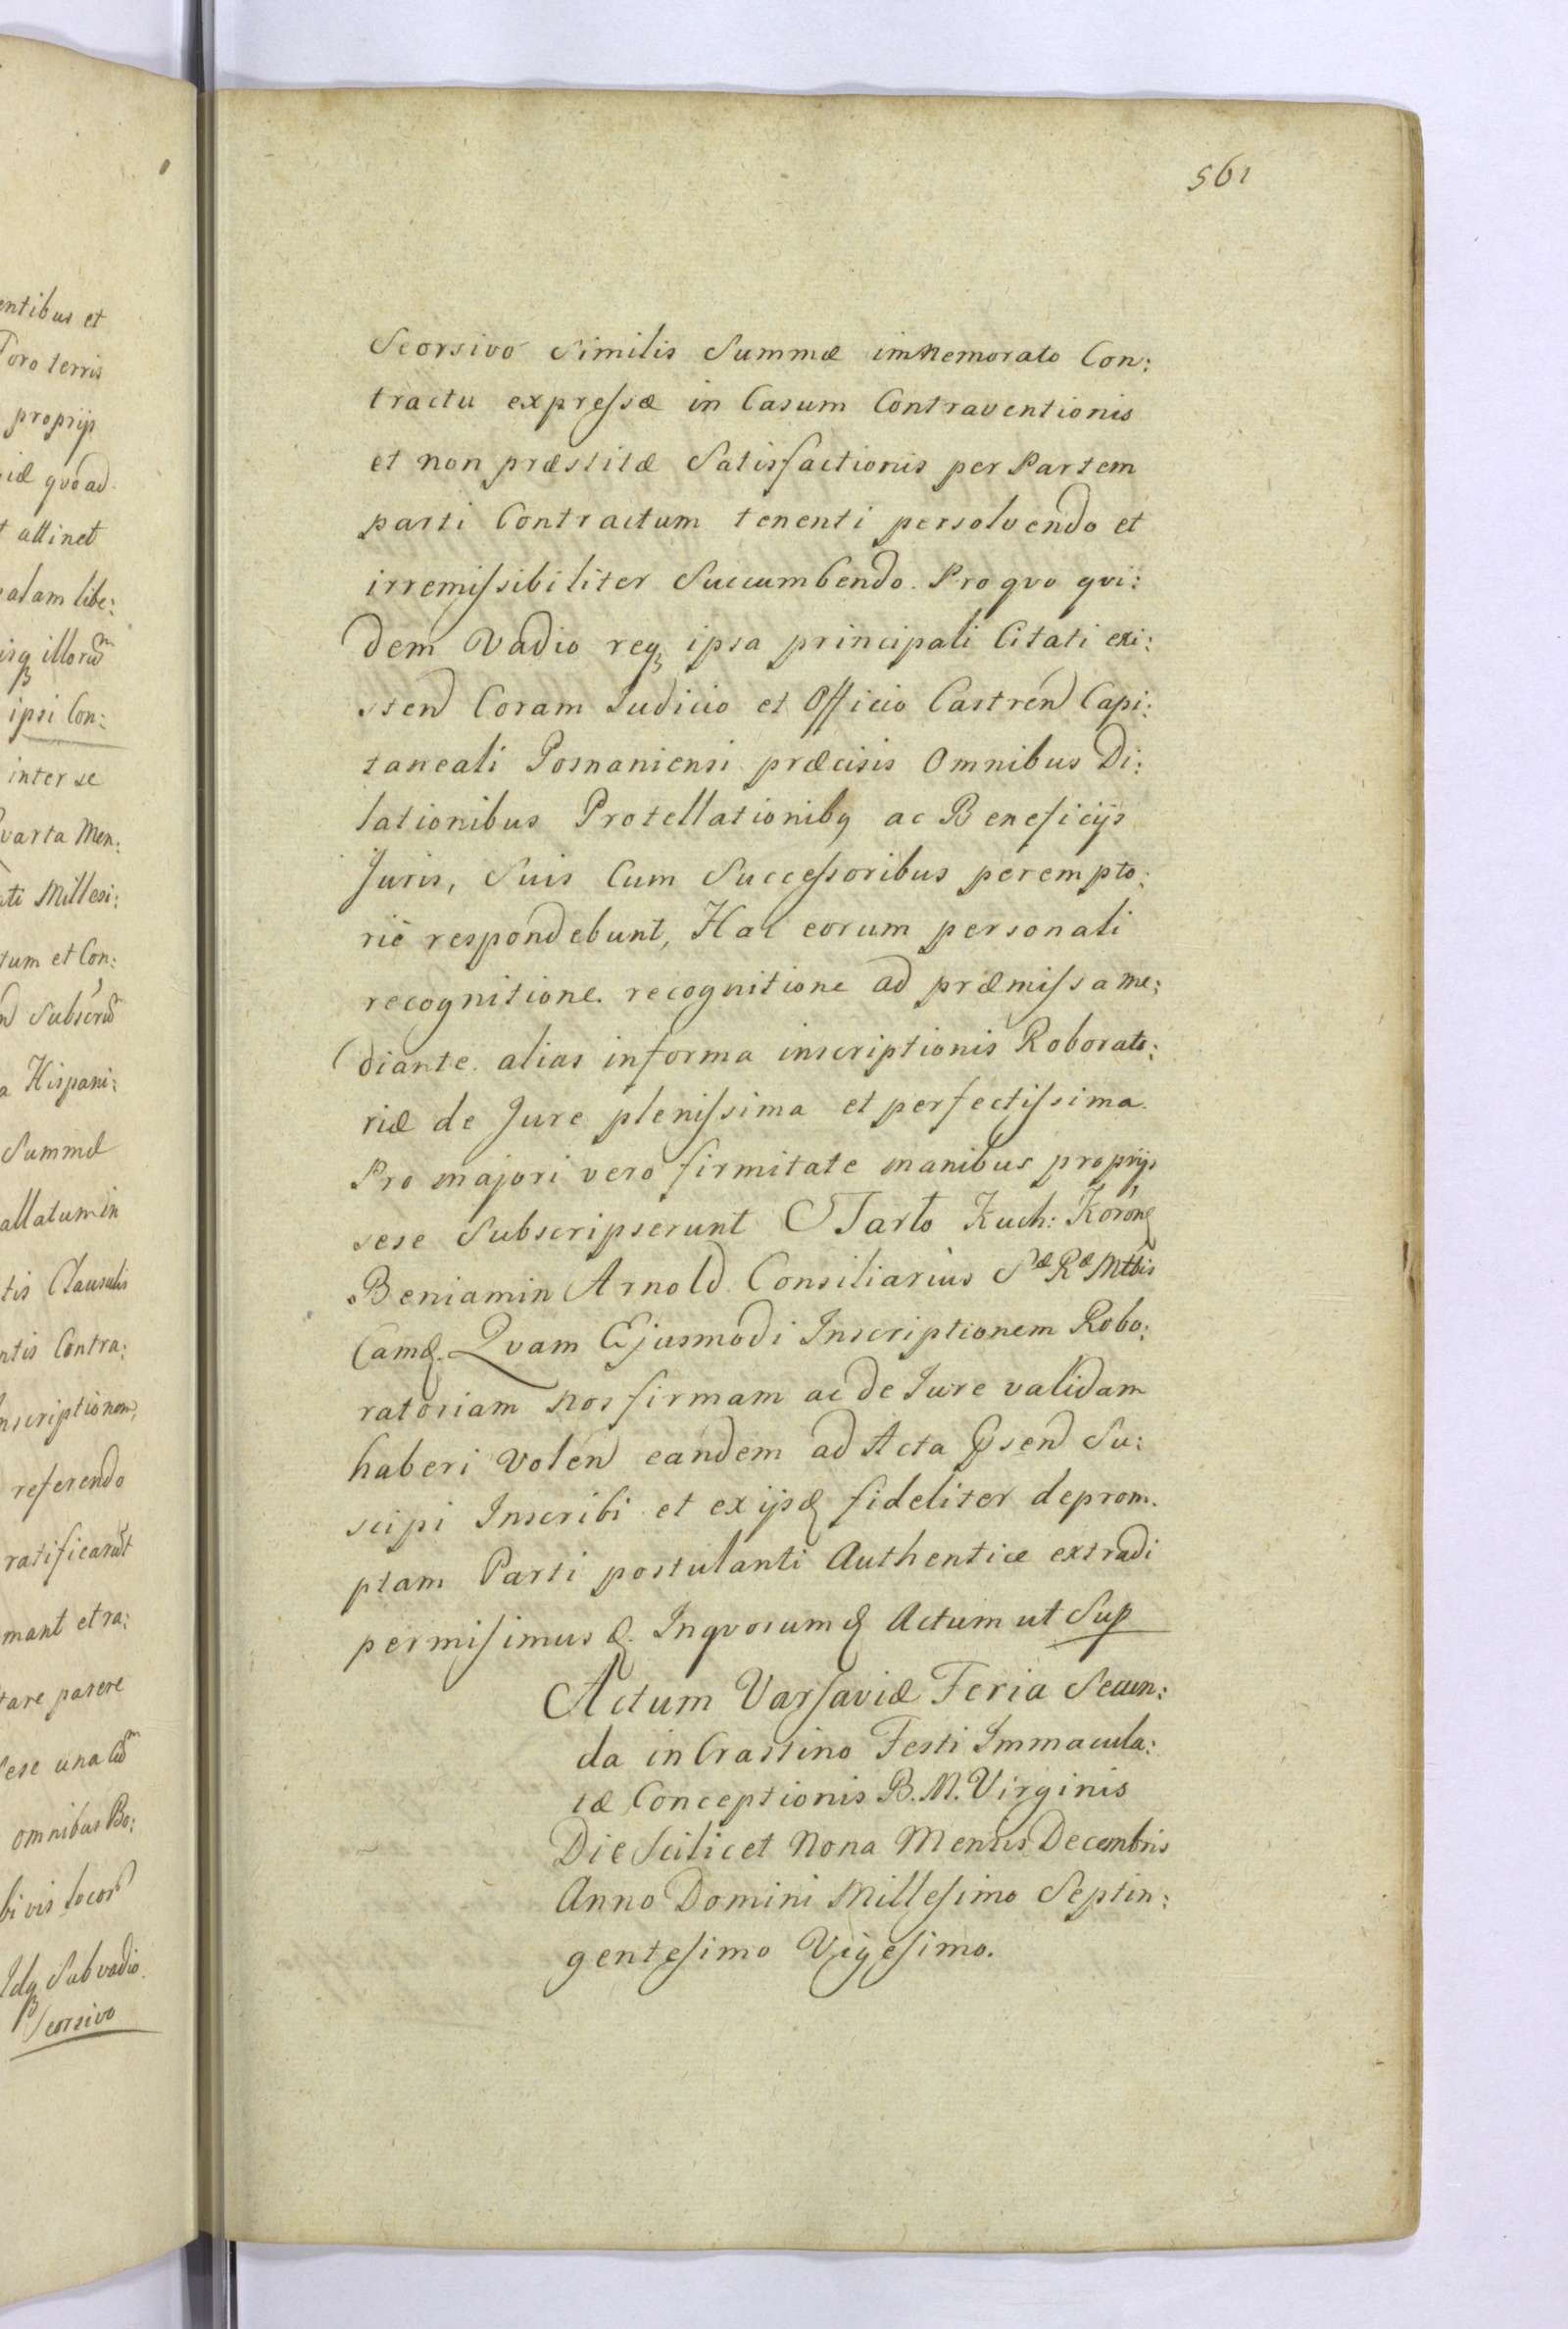 561
Seorsivo Similis Summæ immemorato Con:
tractu expressæ in Casum Contraventionis
et non præstitæ Satisfactionis per Partem
parti Contractum tenenti persolvendo et
irremissibiliter Succumbendo. Pro qvo qvi:
dem Vadio reqꝫ ipsa principali Citati exi:
sten Coram Judicio et Officio Castren Capi:
taneali Posnaniensi præcisis Omnibus Di:
lationibus Protellationibꝫ ac Beneficijs
Juris, Suis Cum Successoribus perempto:
rie respondebunt, Hac eorum personali
recognitione. recognitione ad præmissa me:
diante. alias informa inscriptionis Roborato:
riæ de Jure plenissima et perfectissima.
Pro majori vero firmitate manibus proprijs
sese Subscripserunt Tarło Kuch: Koronꝫ
Beniamin Arnold Consiliarius Sæ Ræ Mttis
Qvam Ejusmodi Inscriptionem Robo:
ratoriam nos firmam ac de Jure validam
haberi Volen eandem ad Acta psen Su:
scipi Inscribi et ex ijsdꝫ fideliter deprom.
ptam Parti postulanti Authentice extradi
permisimus &. Inqvorum & Actum ut Sup
Actum Varsaviæ Feria Secun:
da in Crastino Festi Immacula:
tæ Conceptionis B. M. Virginis
Die Scilicet Nona Mensis Decembris
Anno Domini Millesimo Septin:
gentesimo Vigesimo.
entibus et
oro terris
proprijs
iæ qvoad
attinet
alam libe:
isqꝫ illorum
ipsi Con:
inter se
varta Men:
ti Millesi:
tum et Con:
Subscrib
a Hispani:
Summæ
allatum in
tis Clausulis
ntis Contra:
nscriptionem,
referendo
ratificarunt
mant et ra:
tare parere
sese una cum
omnibus Bo:
bi vis locor
Idqꝫ Sub vadio
Seorsivo